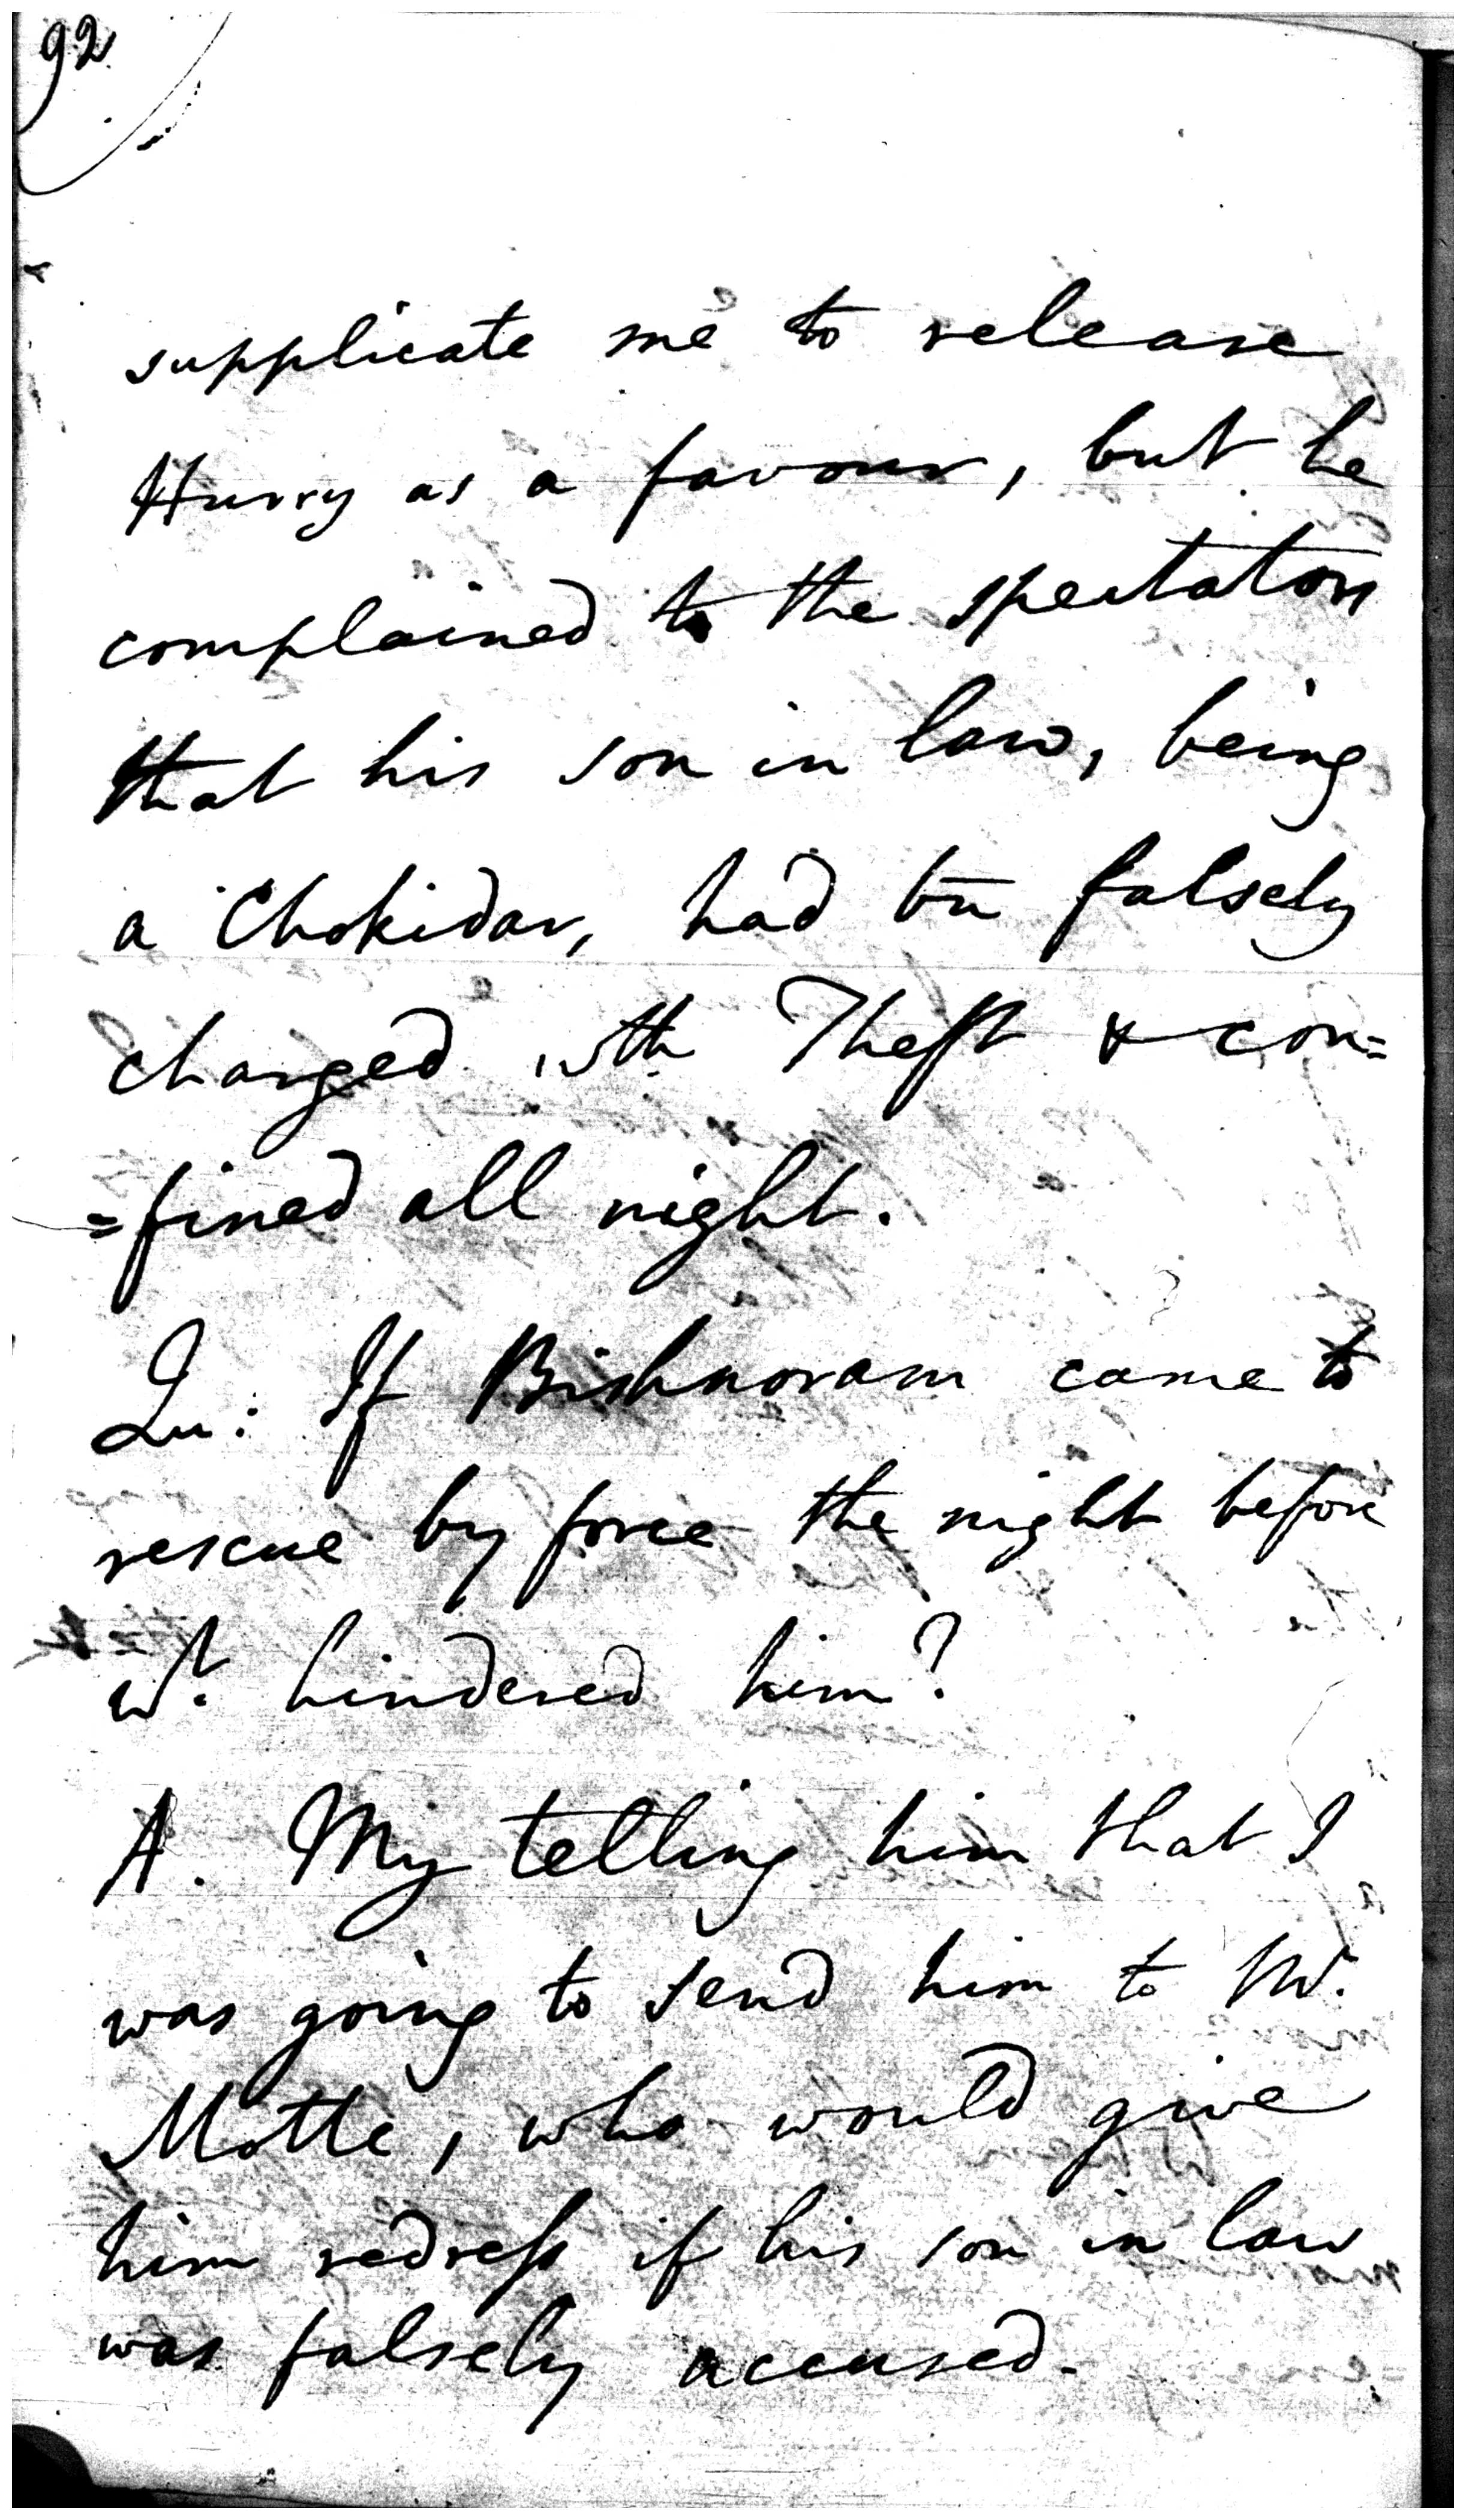 92
supplicate me to release
Hurry as a favour, but he
complained to the spectators
that his son in law, being
a Chokidar, had bn falsely
charged wth Theft & con=
=fined all night.
Qu: If Bishnoram came to
rescue by force the night before
wt. hindered him?
A. My telling him that I
was going to send him to Mr.
Motte, who would give
him redress if his son in law
was falsely accused.